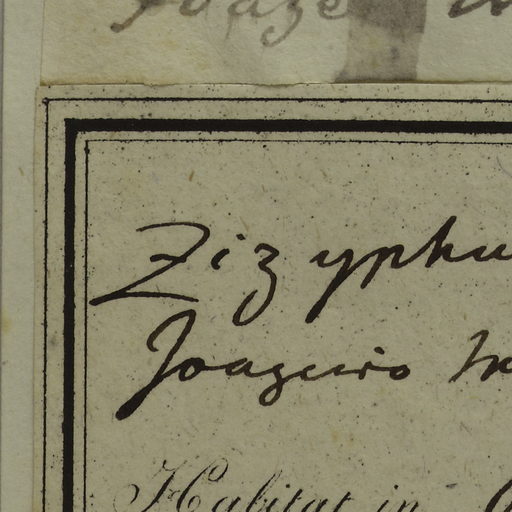 Joaze
Zizyphu
Joazeiro M
Habitat in